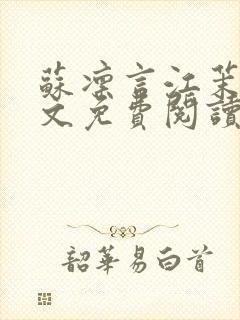 蘇凜言江茉
文免費閱讀
韶華易白首